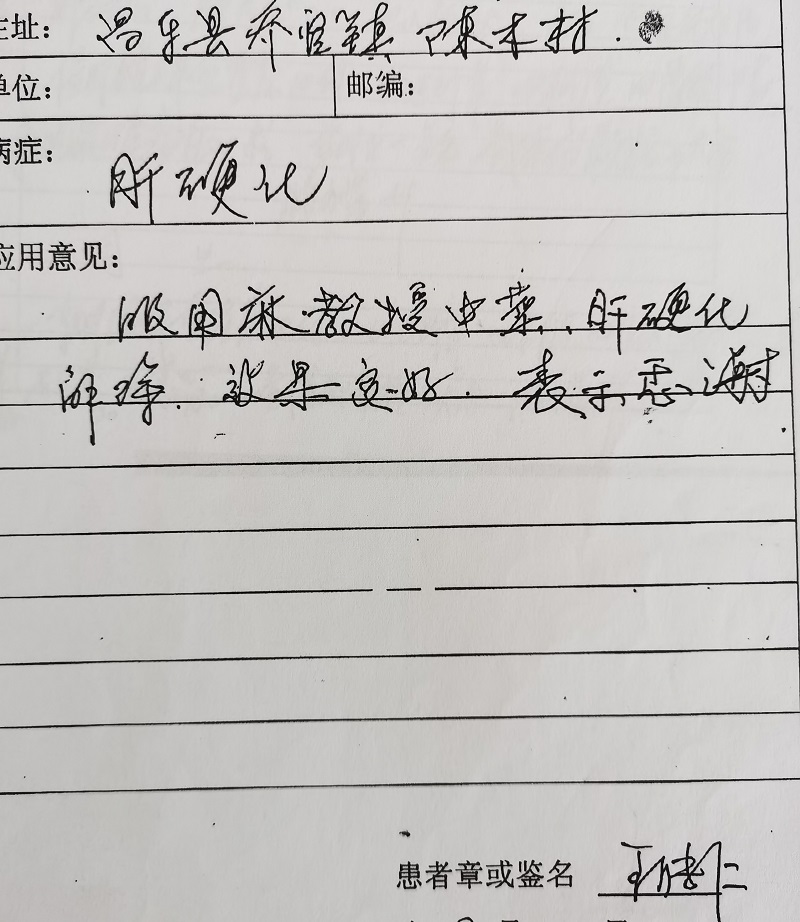 主址:昌乐县乔官镇陈木村.
单位: 邮编:
病症:肝硬化
应用意见:
服用麻教授中药、肝硬化
解除.效果变好.表示感谢
患者章或鉴名